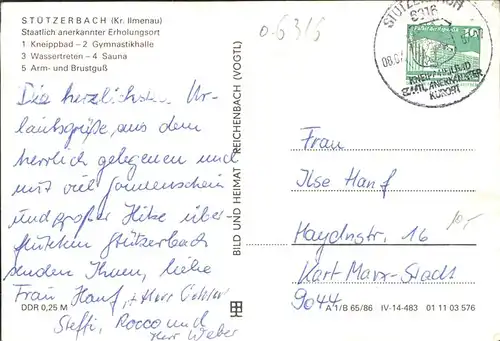 STÜTZERBACH (Kr. Ilmenau)
Staatlich anerkannter Erholungsort
1 Kneippbad – 2 Gymnastikhalle
3 Wassertreten – 4 Sauna
5 Arm- und Brustguß
06316
STÜTZERBACH
6316
KNEIPPHEILBAD
STAATL. ANERKANNTER
KURORT
10
Die herzlichsten Ur-
laubsgrüße, aus dem
herrlich gelegenen und
mit viel Sonnenschein
und großer Hitze über-
fluteten Stützerbach
senden Ihnen, liebe
Frau Hanf, + Herr
Steffi, Rocco und
Herr Weber
BILD UND HEIMAT REICHENBACH (VOGTL)
Frau
Ilse Hanf
Haydnstr. 16
Karl Marx-Stadt
9044
DDR 0,25 M
A 1/B 65/86 IV-14-483 01 11 03 576